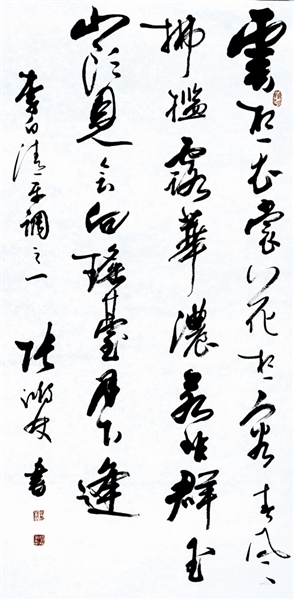 雲想衣裳花想容春風
拂檻露華濃若非群玉
山頭見會向瑤臺月下逢
李白清平調之一 張 書